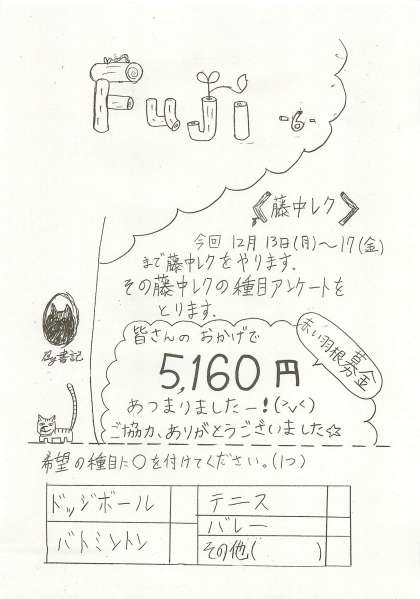 Fuji -6-
《藤中レク》
今回 12月 13日(月)～17(金)
まで藤中レクをやります.
その藤中レクの種目アンケートを
とります.
皆さんの おかげで
5,160 円
あつまりましたー!(>v<)
ご協力、ありがとうございました☆
赤い羽根募金
書記
希望の種目に○を付けてください。(1つ)
ドッジボール
テニス
バトミントン
バレー
その他( )